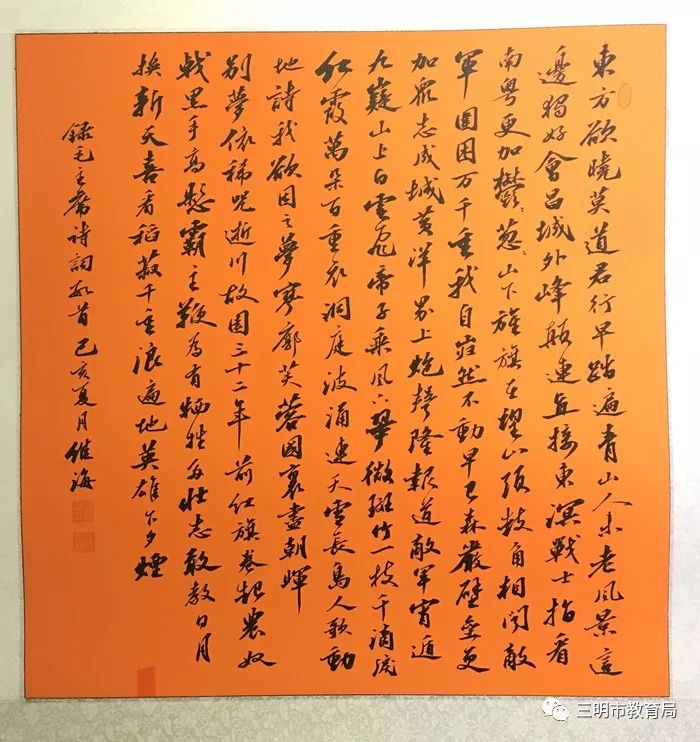 東方欲曉莫道君行早踏遍青山人未老風景這
邊獨好會昌城外峰巔連直接東溟戰士指看
南粤更加鬱〻葱〻山下旌旗在望山頭鼓角相聞敵
軍圍困万千重我自巋然不動早已森嚴壁壘更
加衆志成城黄洋界上炮聲隆報道敵軍宵遁
九嶷山上白雲飛帝子乘風下翠微斑竹一枝千滴淚
紅霞萬朵百重衣洞庭波涌連天雪長島人歌動
地詩我欲因之夢寥廓芙蓉國裏盡朝暉
别夢依稀咒逝川故園三十二年前紅旗卷起農奴
戟黑手高懸霸主鞭為有犧牲多壯志敢教日月
换新天喜看稻菽千重浪遍地英雄下夕煙
録毛主席詩詞数首己亥夏月維海
三明市教育局